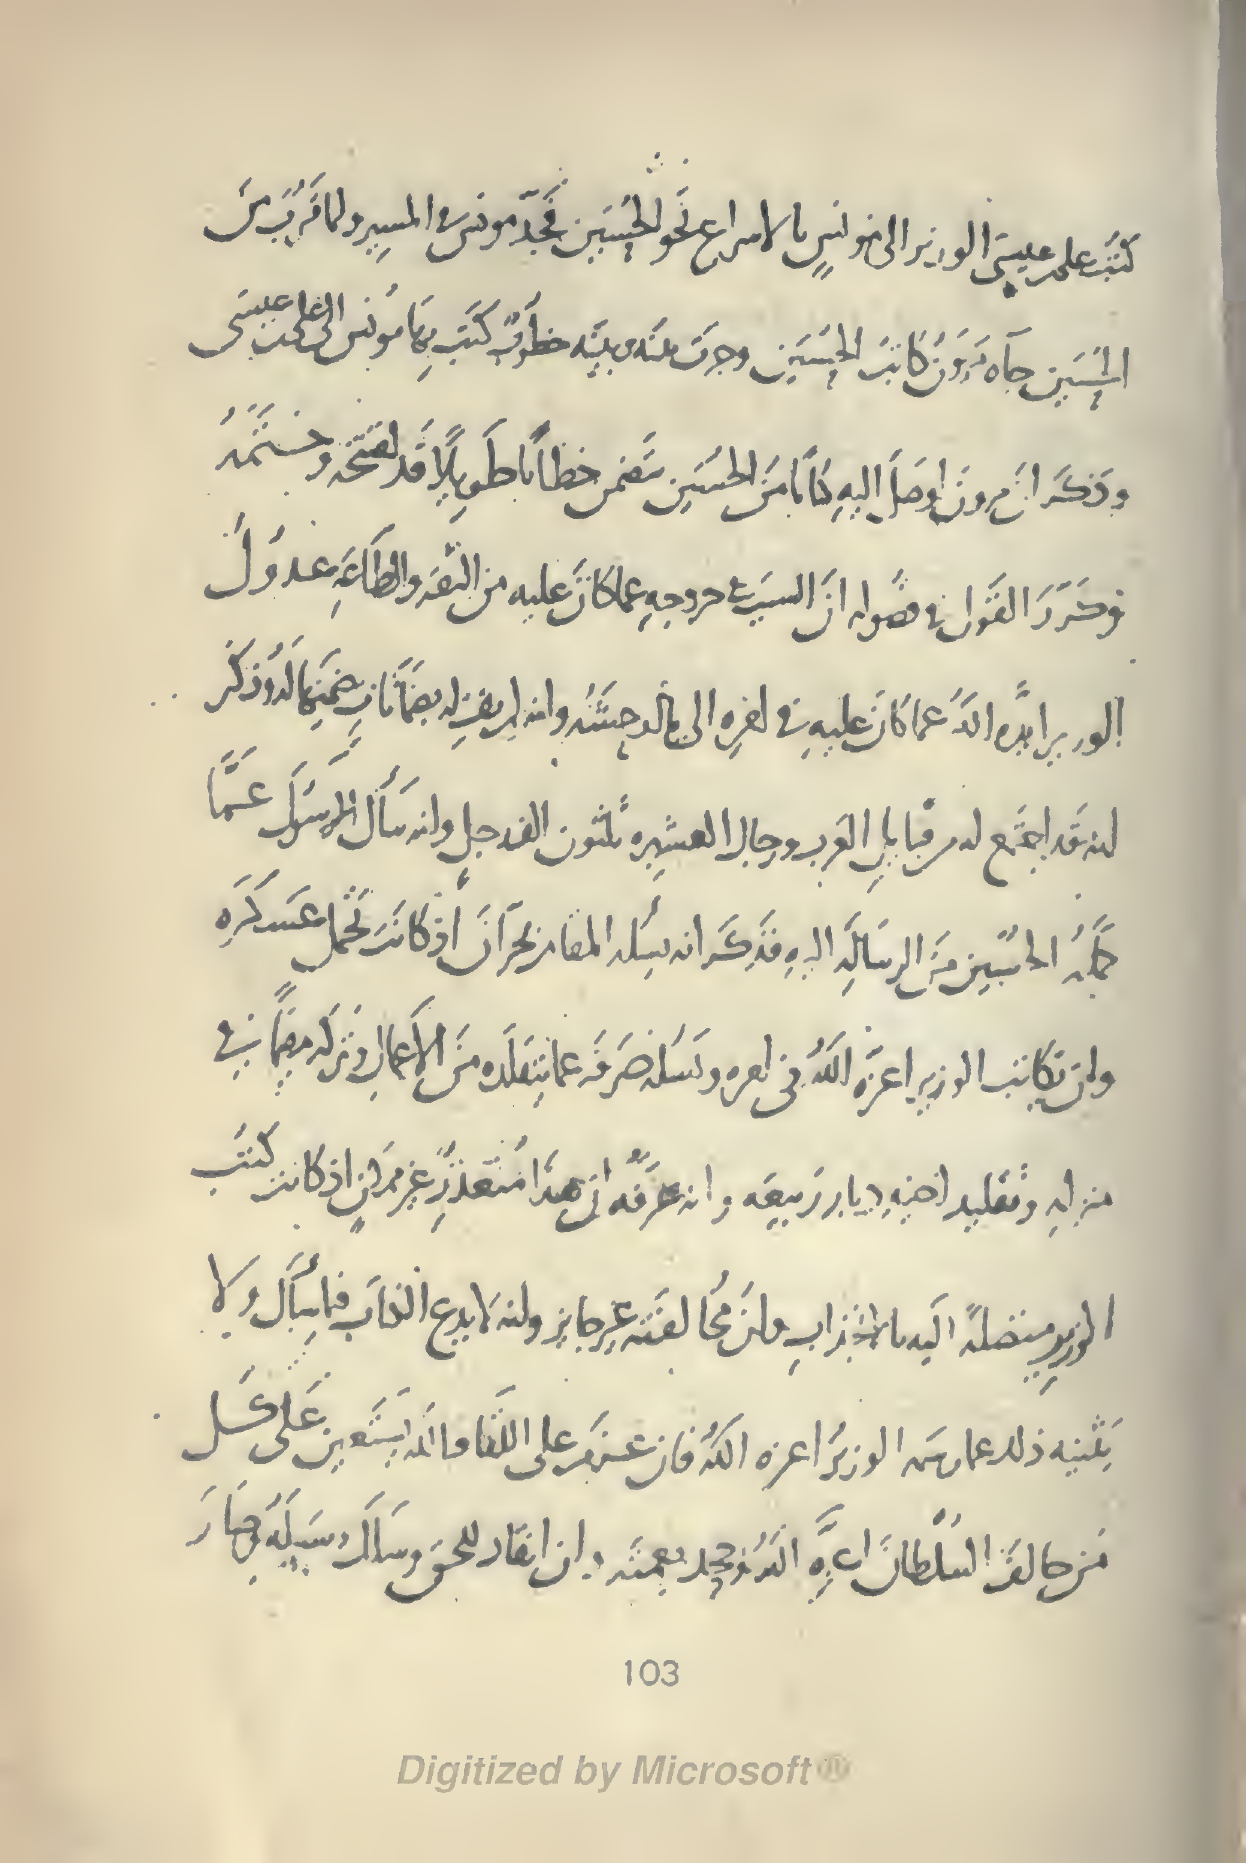 كتب علي بن عيسى الوزير الى مونس بالاسراع نحو الحُسَين فجَدّ مونس في المسير ولما قَرُبَ من
الحُسَين جآه مَروَنُ كاتبَ الحُسَين وجرت بينَه وبينَه خطوبٌ كتَب بها مُونس الى علي بن عيسَى
وذكَرَ انَّ مرون اوصَلَ اليهِ كتابًا منَ الحسَين يتَضمن خطابًا طَويلًا قَد افتتحَه وختَمهُ
وكَرّرَ القَول في فصُوله انَّ السبَب في خروجِهِ عما كانَ عليه من الثقَه والطاعَةِ عدُولُ
الوزير ايّده اللهُ عما كانَ عليهِ في امرِه الى ما اوحشَهُ وانه لم يفِ له بضَمانَاتٍ ضمِنها لَهُ وذَكَر
انه قَد اجتمَع له من قبايلِ العَرب ورجال العشيره ثلثون الف رجلٍ وانه سَأَل الرسُول عَمَّا
حَمَّلَهُ الحُسَين منَ الرسَالَهِ اليهِ فذَكَرَ انه يسَله المقام بحرَّانَ اذ كانَت تحمل عَسكَرَه
وان يكاتب الوزير اعزَّه اللهُ في امره ويَسَله صَرفَه عما يتقلّده منَ الاعمالِ وتركه مقيمًا في
منزله وتقليد اخيهِ ديار رَبيعَه وانه عرّفَه انَّ هذا مُتَعذّرٌ غير ممكنٍ اذ كانت كتُبَ
الوزير متصلةً اليه بالانجذابِ وانَّ مُخالفتَه غير جايز وانه لا يدع الكتاب فيما سأَل ولا
يَثْنيه ذلك عما رسَمه الوزيرُ اعزه اللهُ فان عزمَ على اللقا فباللهِ يَستَعين عَلى كُل
مَن خالفَ السُلطانَ اعزّه اللهُ وجحد نعمتَه وان انقاد للحق وسلكَ سَبيلَهُ وصَارَ
103
Digitized by Microsoft®